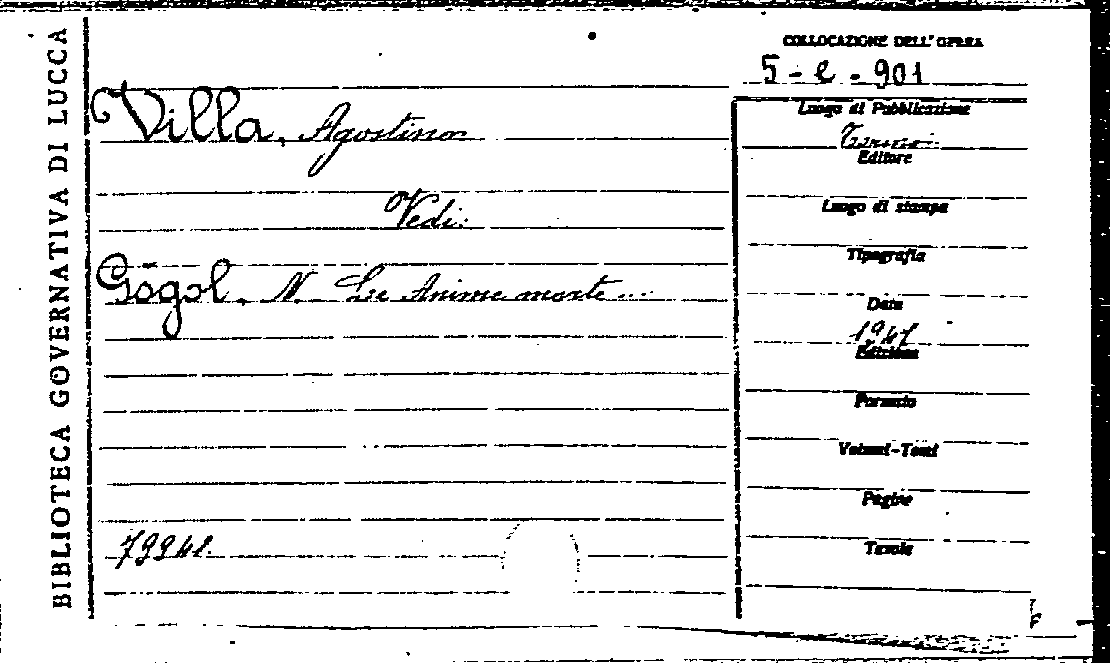 BIBLIOTECA GOVERNATIVA DI LUCCA
Villa, Agostino
Vedi:
Gogol, N. Le Anime morte...
79941.
COLLOCAZIONE DELL'OPERA
5-e-901
Luogo di Pubblicazione
Editore
Luogo di stampa
Tipografia
Data
1947
Edizione
Formato
Volumi-Tomi
Pagine
Tavole